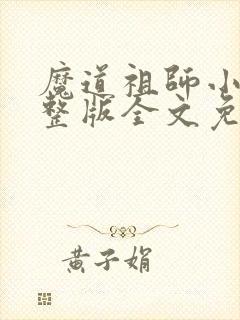 魔道祖師小
整版全文免
黄子娟